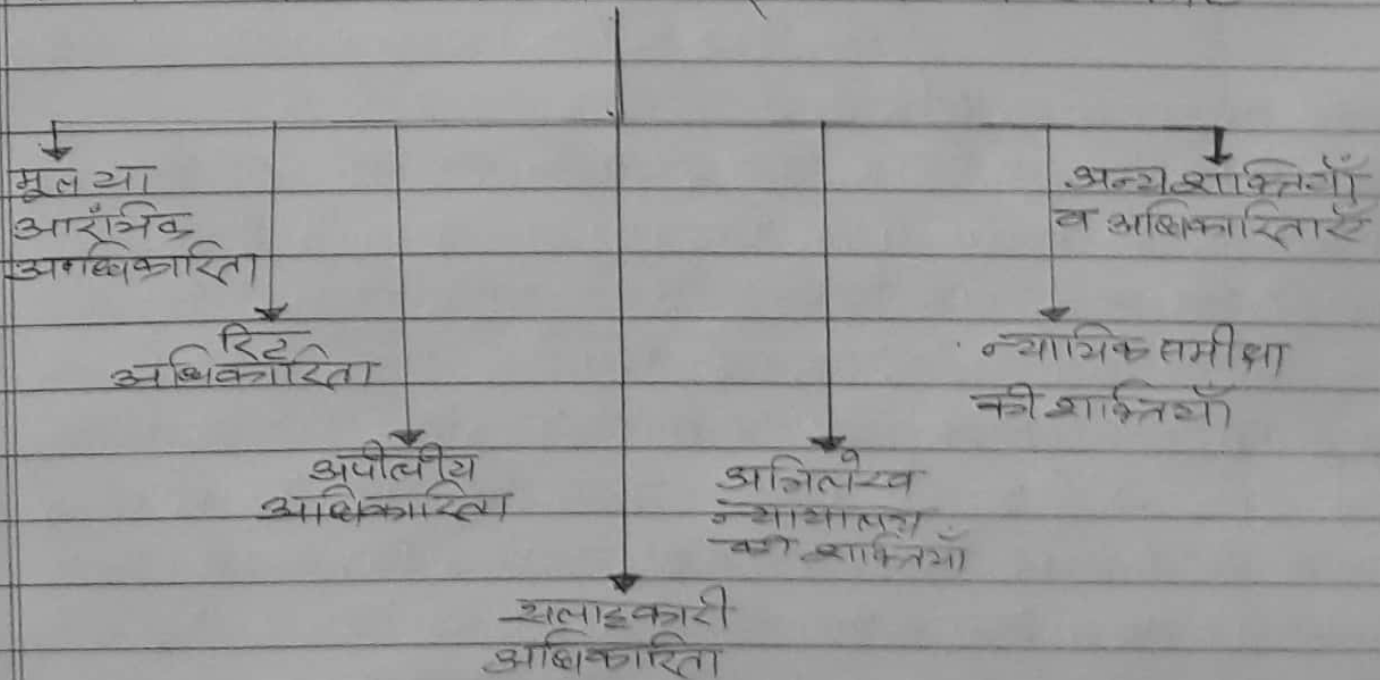 मूल या
आरंभिक
अधिकारिता
रिट
अधिकारिता
अपीलीय
अधिकारिता
सलाहकारी
अधिकारिता
अभिलेख
न्यायालय
की शक्तियाँ
न्यायिक समीक्षा
की शक्तियाँ
अन्य शक्तियाँ
व अधिकारिताएँ